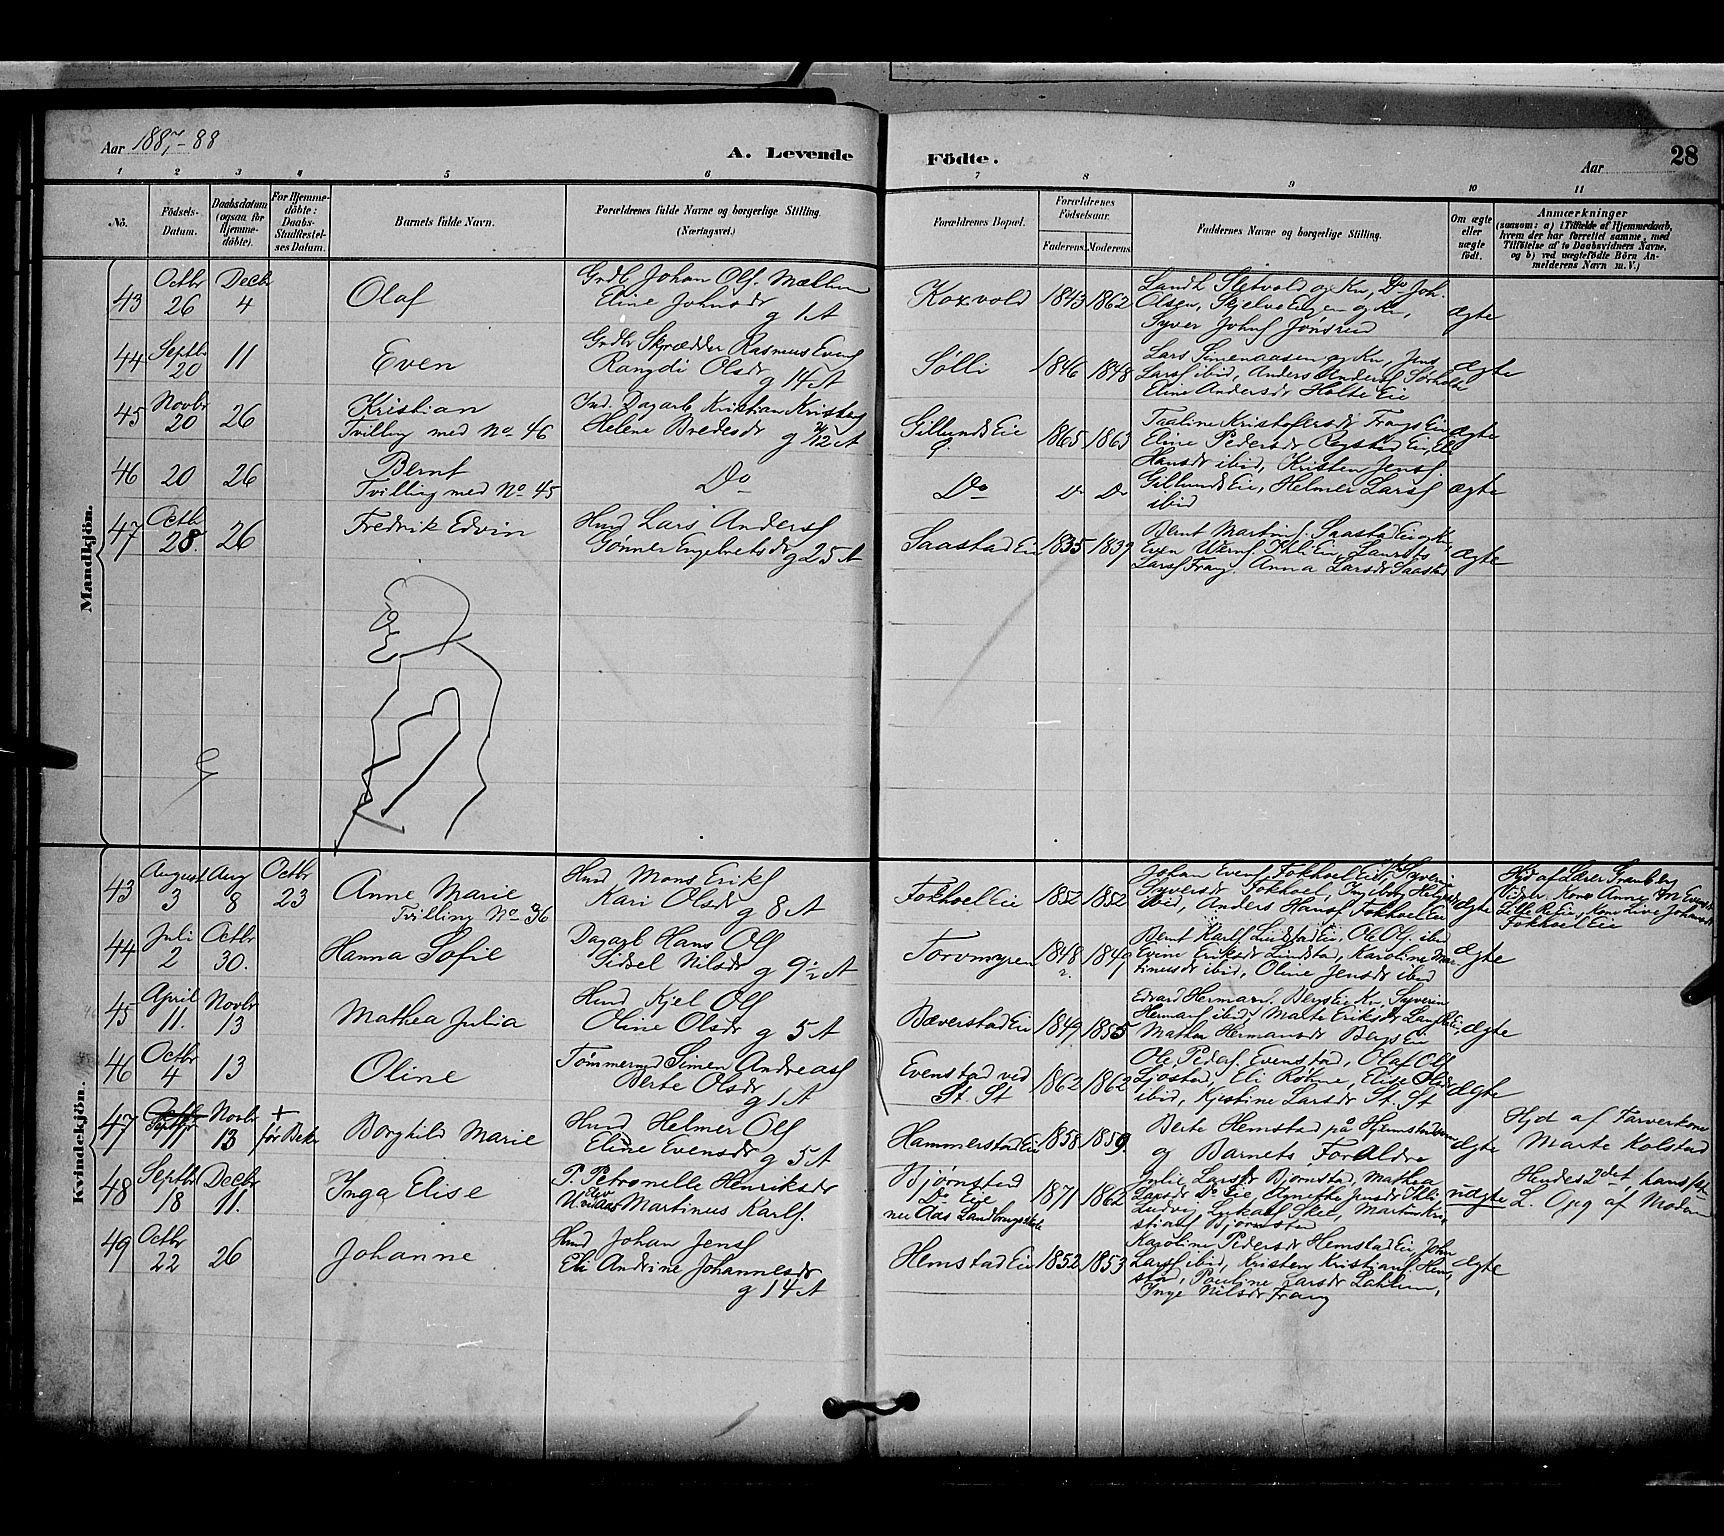 Aar 1887-88
A. Levende Födte.
Aar
28
1 2 3 4 5 6 7 8 9 10 11
No.
Födsels-Datum.
Daabsdatum (ogsaa for Hjemme-döbte).
For Hjemme-döbte: Daabs-Stadfæstel-ses Datum.
Barnets fulde Navn.
Forældrenes fulde Navne og borgerlige Stilling.
(Næringsvei.)
Forældrenes Bopæl.
Forældrenes Födselsaar.
Faderens. Moderens.
Faddernes Navne og borgerlige Stilling.
Om ægte eller uægte födt.
Anmærkninger
(saasom: a) i Tilfælde af Hjemmedaab,
hvem der har forrettet samme, med
Tilföielse af to Daabsvidners Navne,
og b) ved uægtefödte Börn An-
melderens Navn m.V.)
Mandkjön.
43 Octbr 26 Decbr 4 Olaf
Grdb. Johan Ols. Mællum
Eline Johnsdr
g 1 A
Koxvold 1843 1862
Landh. Sletvold og Kn, Do Joh.
Olsen, Skjelveengen og Kn,
Syver Johns Jonsrud
ægte
44 Septbr 20 11 Even
Grdb Skrædder Rasmus Evens
Rangdi Olsdr
g 14 A
Sølli 1846 1848
Lars Simenaasen og Kn, Jens
Larss ibid, Anders Anders
Eline Andersdr Holte Eie
ægte
45 Novbr 20 26 Kristian
Tvilling med No 46
Ind. Dagarb Kristian
Helene Bredesdr
Gillunds Eie 1865 1863
Taaline Kristofersdr Frangs Eie
Eline Pedersdr
Hansdr ibid, Kristen Jens.
ægte
46 20 26 Bernt
Tvilling med No 45
Do
Do Do Do
Gillunds Eie, Helmer Larss
ibid
ægte
47 Octbr 28. 26 Fredrik Edvin
Husmd Lars Anderss
Gønner Engebretsdr g 25 A
Saastad Eie 1835 1839
Bernt Martins. Saastad Eie
Even Ihli Eie, Laurits
Larss Frang. Anna Larsdr Saastad
ægte
Kvindekjön.
43 August 3 Aug 8 Octbr 23 Anne Marie
Tvilling No 36
Husmd Mons Eriks
Kari Olsdr
g 8 A
Fokhol Eie 1852 1852
Johan Evens Fokhol Eie, Syverin
Syversdr Fokhoel, Ingeborg
ibid, Anders Hanss Fokhoel Eie
ægte
Hjd af Lærer
Vidner Kone Anne
Kone Live
Fokhoel Eie
44 Juli 2 Octbr 30. Hanna Sofie
Dagarb Hans Ols
Sidsel Nilsdr g 9½ A
Torvmyren 1848 1849
Bernt Karls. Lindstad Eie, Ole Ols. ibid
Evine Eriksdr Lindstad, Karoline Mar-
tinusdr ibid, Oline Jensdr ibid
ægte
45 April 11. Novbr 13 Mathea Julia
Husmd Kjel Ols
Oline Olsdr g 5 A
Bæverstad Eie 1849 1855
Edvard Herman. Bergs Eie Kn, Syverin
Hermans ibid, Marte Eriksdr
Mathea Hermansdr Bergs Eie
ægte
46 Octbr 4 13 Oline
Tømmermd Simen Andreass
Berte Olsdr
g 1 A
Evenstad ved
St. St 1862 1862
Ole Peders Evenstad, Olaf Ols
Sjostad, Eli Røhne, Elise Olsdr
ibid, Kjestine Larsdr St. St
ægte
47 Septbr Novbr 13 + før Bekr Borghild Marie
Husmd Helmer Ols
Eline Evensdr g 5 A
Hammerstad Eie 1858 1859.
Berte Hemstad på
og Barnets Forældre
ægte
Hjd af Farverkone
Marte Kolstad
48 Septbr 18 Decbr 11. Inga Elise
P. Petronelle Henriksdr
Martinus Karls.
Bjørnstad
Do Eie
Aas Landbrugsskole
1871 1862
Julie Larsdr Bjørnstad, Mathea
Larsdr Do Eie, Agnethe Jensdr Ihli,
Ludvig Slee, Martin Kri-
stians Bjørnstad
uægte
Hendes 2det, hans 1st
L. Opg af Moderen
49 Octbr 22 26 Johanne
Husmd Johan Jenss
Eli Andrine Johannesdr
g 14 A
Hemstad Eie 1852 1853
Karoline Pedersdr Hemstad Eie, John
Larss ibid, Kristen Kristians. Hem-
stad, Pauline Larsdr Lahlum,
Inge Nilsdr Frang
ægte